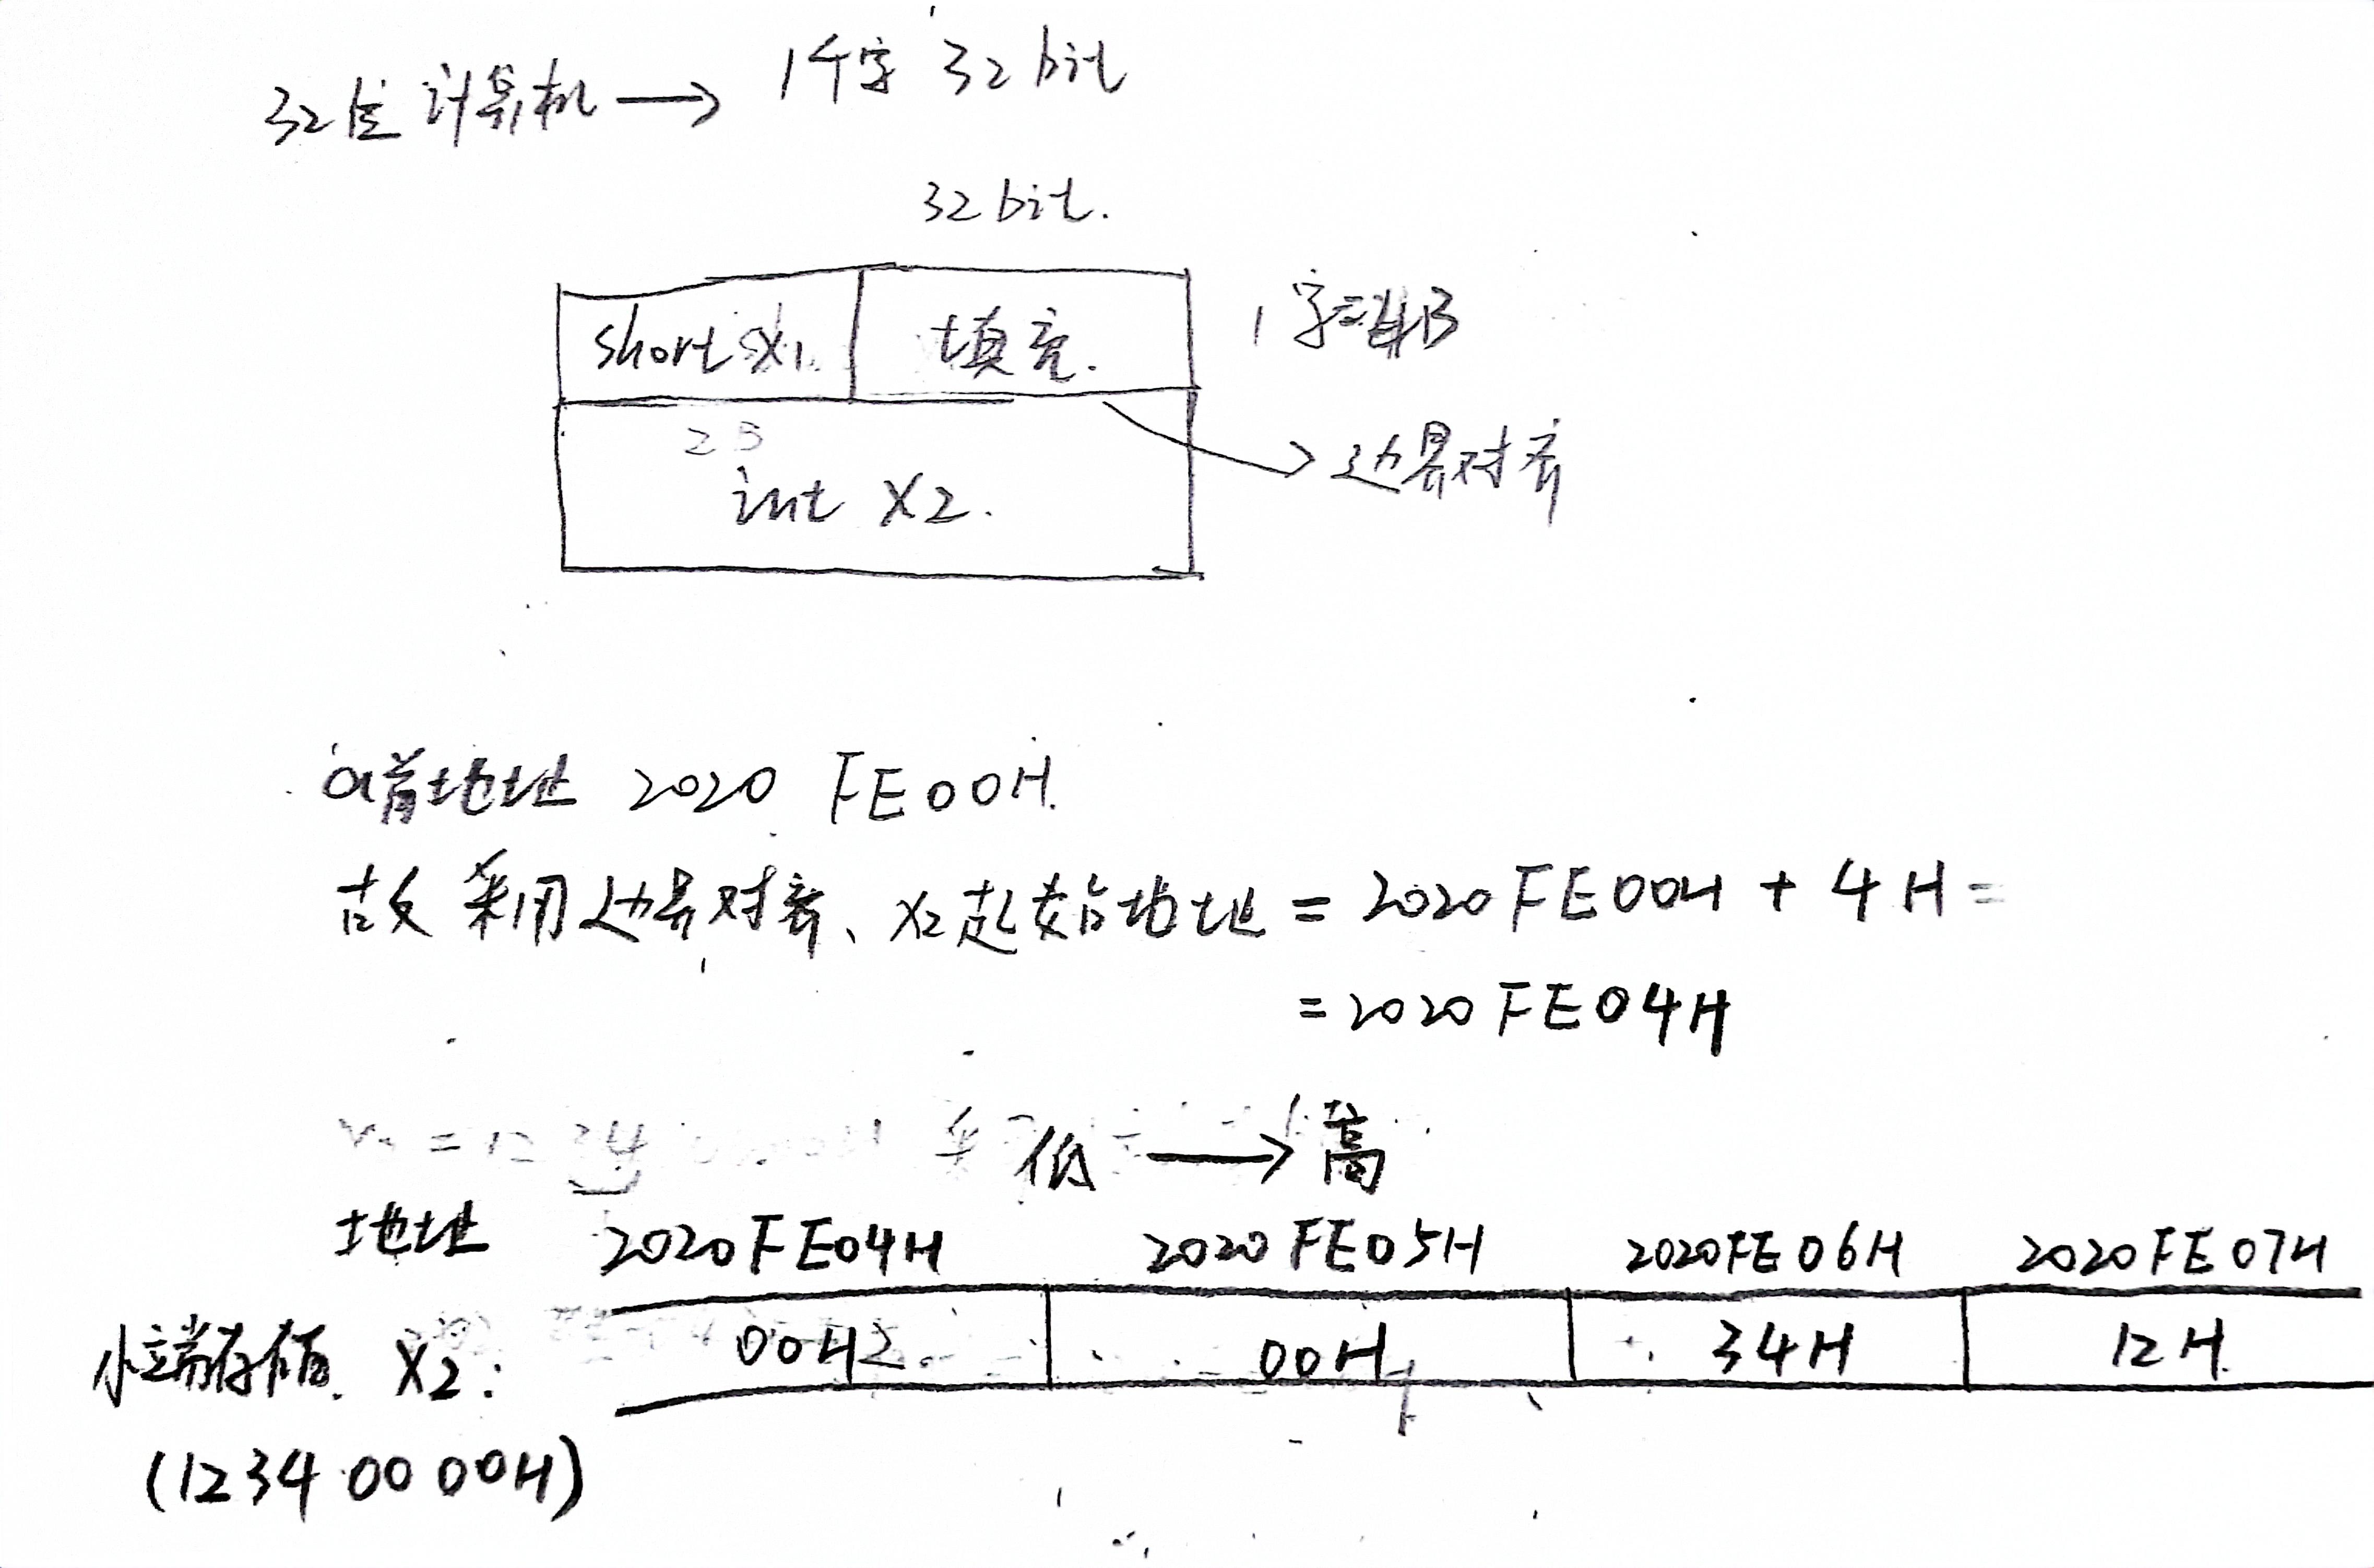 32位计算机 → 1个字 32bit
32bit.
short x1. 填充. 1字=4B
2B
int x2. → 边界对齐
a首地址 2020 FE00H.
故采用边界对齐、x2起始地址 = 2020FE00H + 4H =
= 2020FE04H
低 → 高
地址 2020FE04H 2020FE05H 2020FE06H 2020FE07H
小端存储 x2: 00H 00H 34H 12H
(1234 00 00H)